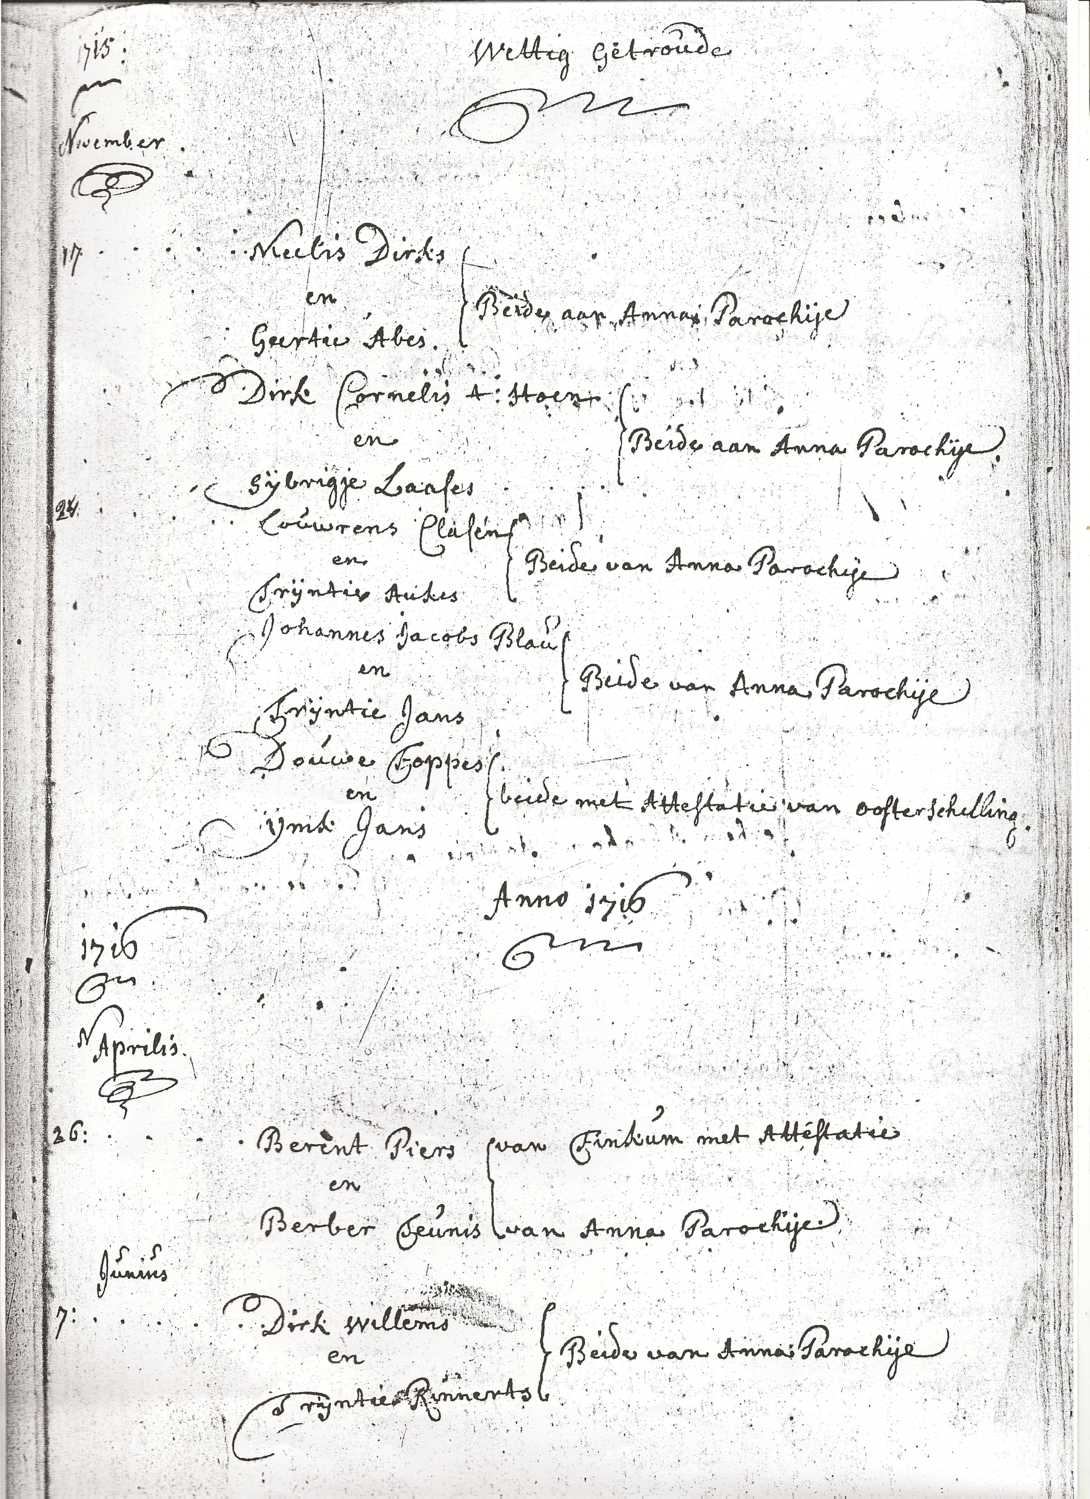 1715:
Wettig Getroude
November.
17 Neelis Dirks
en
Geertie Abes.
Beide aan Anna Parochije
Dirk Cornelis A: Hoen
en
Sybrigje Laases
Beide aan Anna Parochije.
24 Louwrens Clasen
en
Trijntie Aukes
Beide van Anna Parochije
Johannes Jacobs Blau
en
Trijntie Jans
Beide van Anna Parochije
Douwe Foppes
en
Ymk Jans
beide met Attestatie van Oosterschelling.
Anno 1716
1716
Aprilis.
26: Berent Piers van Finkum met Attestatie
en
Berber Teunis van Anna Parochije.
Junius
7: Dirk Willems
en
Trijntie Rinnerts
Beide van Anna: Parochije